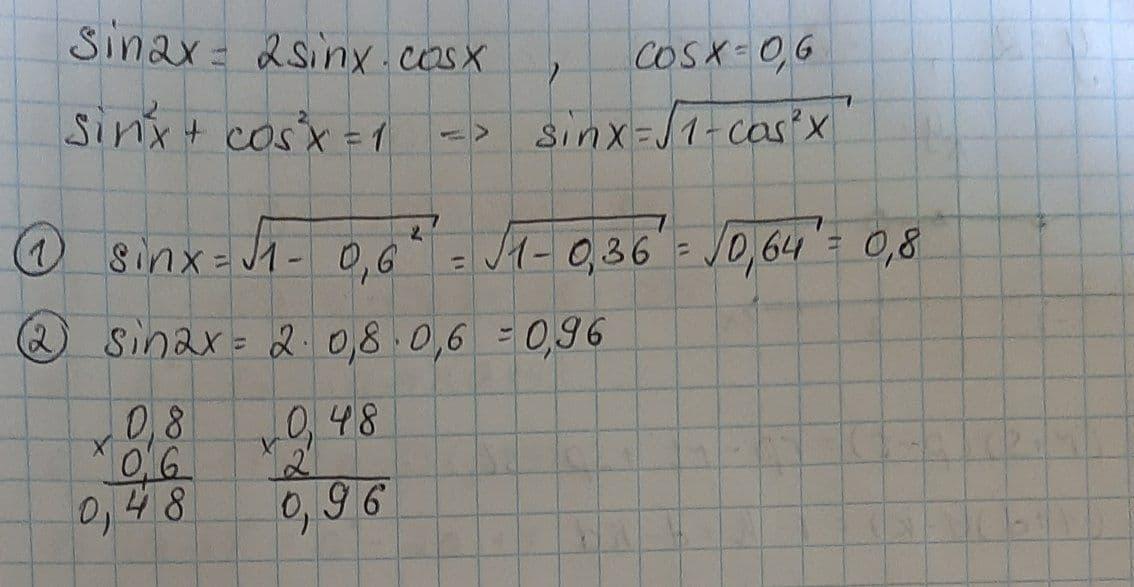 sin2x = 2sinx · cosx , cosx = 0,6
sin²x + cos²x = 1 => sinx = √1 - cos²x
① sinx = √1 - 0,6² = √1 - 0,36 = √0,64 = 0,8
② sin2x = 2 · 0,8 · 0,6 = 0,96
0,8 0,48
× 0,6 × 2
0,48 0,96